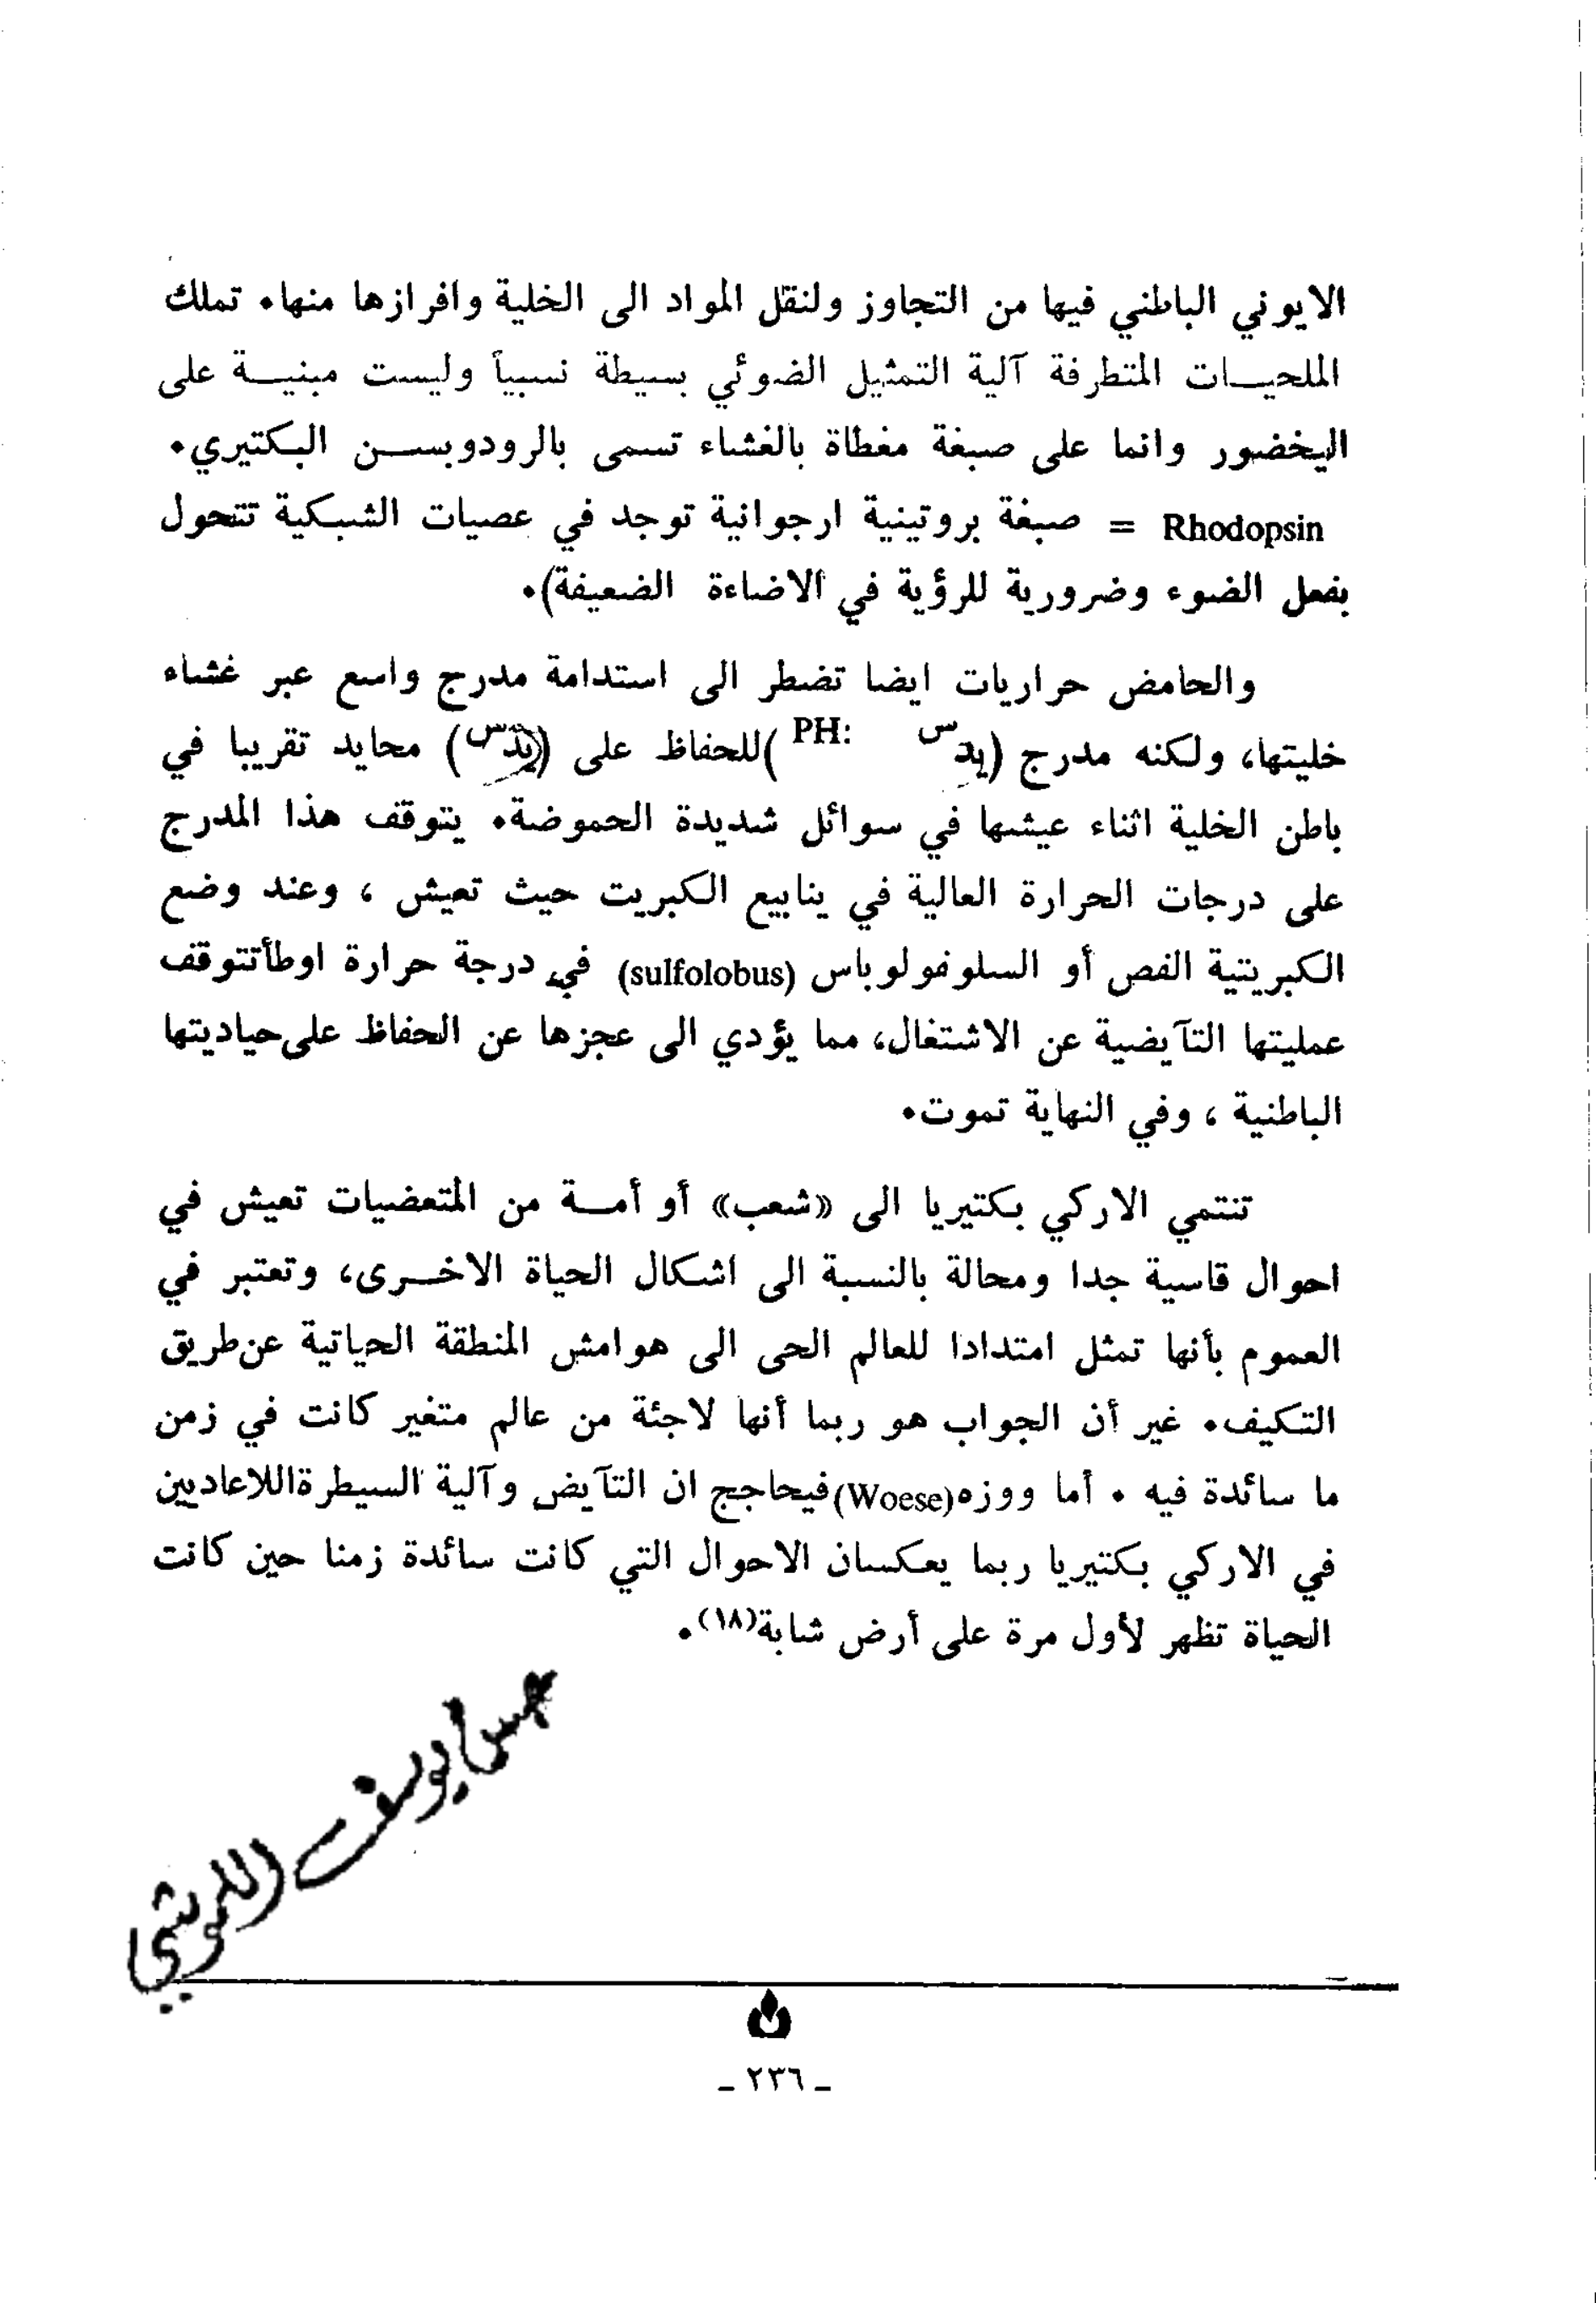 الايوني الباطني فيها من التجاوز ولنقل المواد الى الخلية وافرازها منها. تملك
الملحيـــات المتطرفة آلية التمثيل الضوئي بسيطة نسبياً وليست مبنيـــة على
اليخضور وانما على صبغة مغطاة بالغشاء تسمى بالرودوبســـن البكتيري.
Rhodopsin = صبغة بروتينية ارجوانية توجد في عصيات الشبكية تتحول
بفعل الضوء وضرورية للرؤية في الاضاءة الضعيفة).
والحامض حراريات ايضا تضطر الى استدامة مدرج واسع عبر غشاء
خليتها، ولكنه مدرج (يدس PH:) للحفاظ على (يدس) محايد تقريبا في
باطن الخلية اثناء عيشها في سوائل شديدة الحموضة. يتوقف هذا المدرج
على درجات الحرارة العالية في ينابيع الكبريت حيث تعيش ، وعند وضع
الكبريتية الفص أو السلوفولوباس (sulfolobus) في درجة حرارة اوطأتتوقف
عمليتها التآيضية عن الاشتغال، مما يؤدي الى عجزها عن الحفاظ على حياديتها
الباطنية ، وفي النهاية تموت.
تنتمي الاركي بكتيريا الى «شعب» أو أمـــة من المتعضيات تعيش في
احوال قاسية جدا ومحالة بالنسبة الى اشكال الحياة الاخـــرى، وتعتبر في
العموم بأنها تمثل امتدادا للعالم الحى الى هوامش المنطقة الحياتية عن طريق
التكيف. غير أن الجواب هو ربما أنها لاجئة من عالم متغير كانت في زمن
ما سائدة فيه . أما ووزه (Woese) فيحاجج ان التآيض وآلية السيطرة اللاعاديين
في الاركي بكتيريا ربما يعكسان الاحوال التي كانت سائدة زمنا حين كانت
الحياة تظهر لأول مرة على أرض شابة(١٨).
يوسف
- ٢٣٦ -